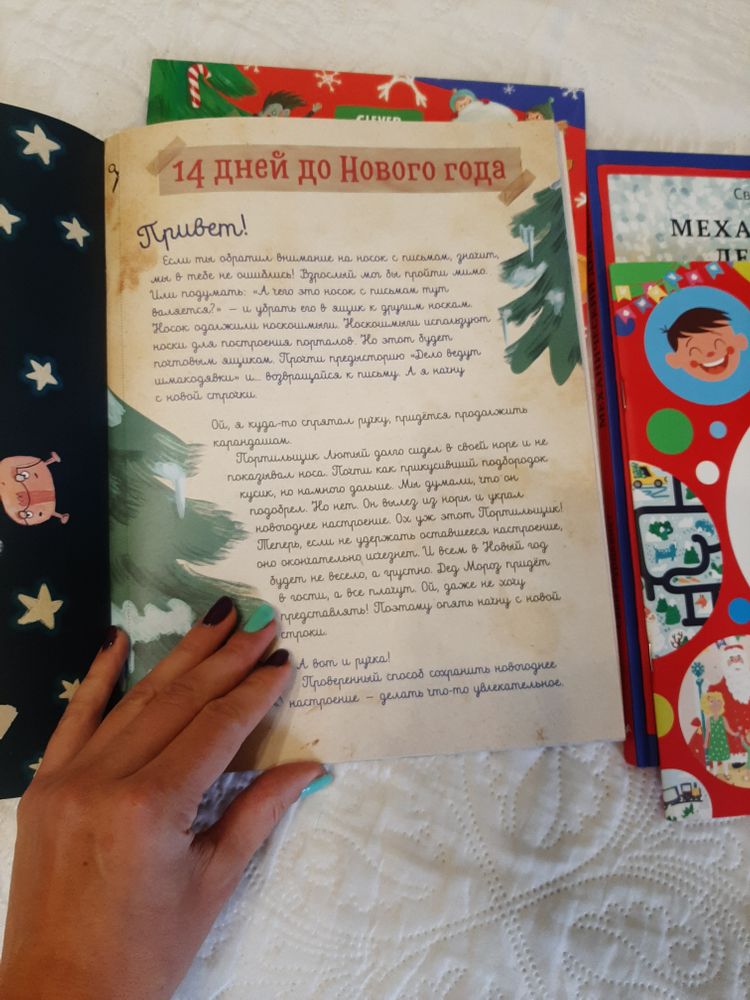 CLEVER
14 дней до Нового года
Привет!
Если ты обратил внимание на носок с письмом, значит,
мы в тебе не ошиблись! Взрослый мог бы пройти мимо.
Или подумать: «А чего это носок с письмом тут
валяется?» — и убрать его в ящик к другим носкам.
Носок одолжили носкошмыги. Носкошмыги используют
носки для построения порталов. Но этот будет
почтовым ящиком. Прочти предысторию «Дело ведут
шмакодявки» и... возвращайся к письму. А я начну
с новой строчки.
Ой, я куда-то спрятал ручку, придётся продолжить
карандашом.
Портильщик Лютый долго сидел в своей норе и не
показывал носа. Почти как прикусивший подбородок
кусик, но намного дальше. Мы думали, что он
подобрел. Но нет. Он вылез из норы и украл
новогоднее настроение. Ох уж этот Портильщик!
Теперь, если не удержать оставшееся настроение,
оно окончательно исчезнет. И всем в Новый год
будет не весело, а грустно. Дед Мороз придёт
в гости, а все плачут. Ой, даже не хочу
представлять! Поэтому опять начну с новой
строки.
А вот и ручка!
Проверенный способ сохранить новогоднее
настроение — делать что-то увлекательное.
Св
МЕХА
ДЕ